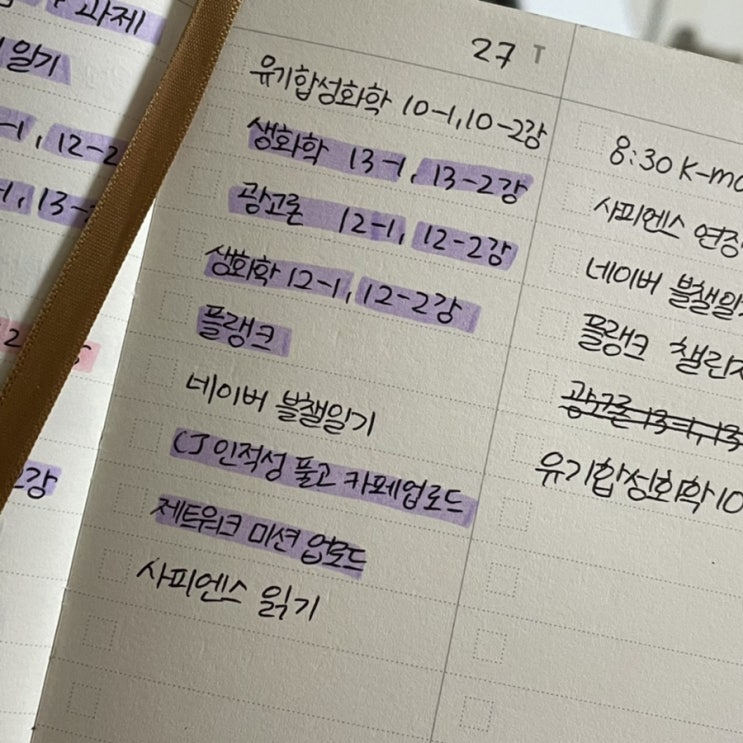 과제
일기
-1, 12-2
-1, 13-
2
강
27 T
유기합성화학 10-1, 10-2강
생화학 13-1, 13-2강
광고론 12-1, 12-2강
생화학 12-1, 12-2강
플랭크
네이버 블챌일기
CJ 인적성 풀고 카페업로드
제트워크 미션 업로드
사피엔스 읽기
8:30 K-mo
사피엔스 연장
네이버 블챌일
플랭크 챌린지
광고론 13-1, 13
유기합성화학 10